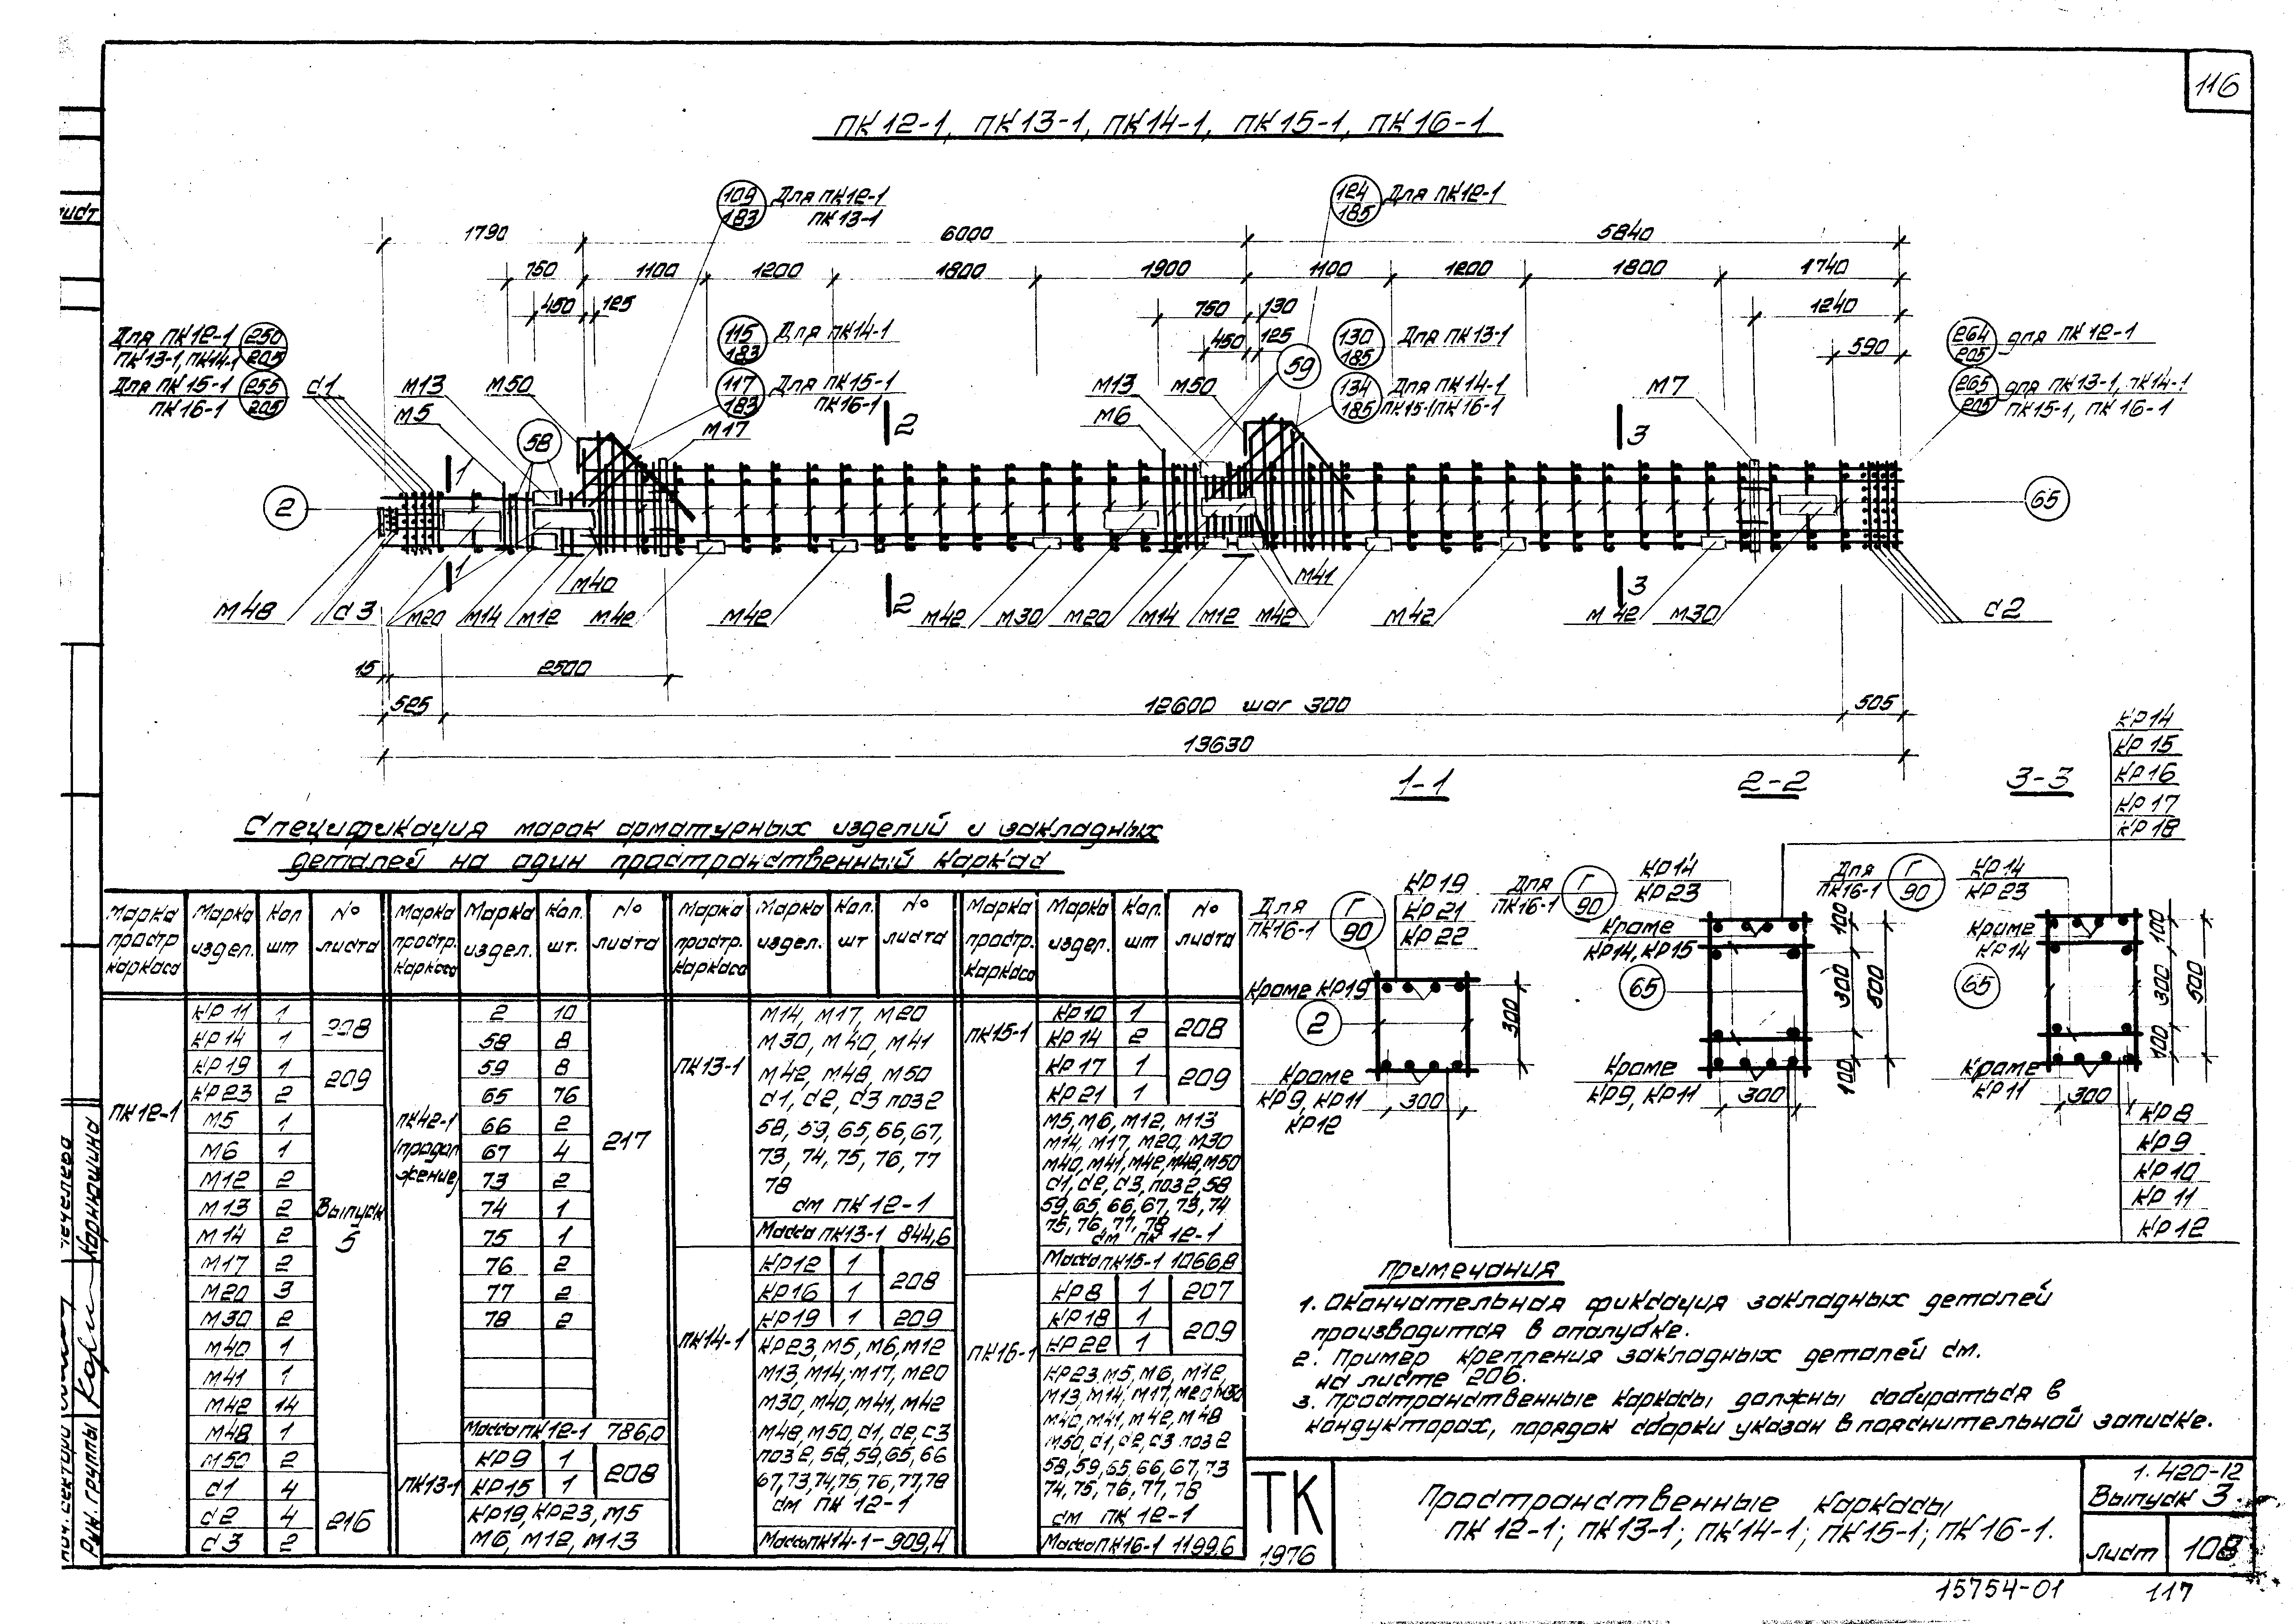 116
ПК12-1, ПК13-1, ПК14-1, ПК15-1, ПК16-1
109 Для ПК12-1
183 ПК13-1
124 Для ПК12-1
185
1790 6000 5840
750 1100 1200 1800 1900 1100 1200 1800 1740
450 125 750 130 1240
450 125 590
Для ПК12-1 250
ПК13-1, ПК14-1 205
Для ПК15-1 255
ПК16-1 205
115 Для ПК14-1
183
117 Для ПК15-1
183 ПК16-1
130 Для ПК13-1
185
134 Для ПК14-1
185 ПК15-1 ПК16-1
264 для ПК12-1
205
265 для ПК13-1, ПК14-1
205 ПК15-1, ПК16-1
С1 М13 М50 М13 М50 59 М7
М5 58 М17 М6
1 2 3
2 65
1 М40 2 М41 3
М48 С3 М20 М14 М12 М42 М42 М42 М30 М20 М14 М12 М42 М42 М42 М30 С2
15 2500
525 12600 шаг 300 505
13630
1-1 2-2 3-3
КР14
КР15
КР16
КР17
КР18
Для ПК16-1 Г 90
КР19
КР21
КР22
Кроме КР19
2
300
Кроме
КР9, КР11
КР12
300
Для ПК16-1 Г 90
КР14
КР23
Кроме
КР14, КР15
65
100 300 100 500
Кроме
КР9, КР11
300
Для ПК16-1 Г 90
КР14
КР23
Кроме
КР14
65
100 300 100 500
Кроме
КР11
300
КР8
КР9
КР10
КР11
КР12
Спецификация марок арматурных изделий и закладных
деталей на один пространственный каркас
Марка простр каркаса Марка издел. Кол шт № листа
Марка простр. каркаса Марка издел. Кол. шт. № листа
Марка простр. каркаса Марка издел. Кол. шт № листа
Марка простр. каркаса Марка издел. Кол. шт № листа
ПК12-1
КР11 1 208
КР14 1
КР19 1 209
КР23 2
М5 1 Выпуск 5
М6 1
М12 2
М13 2
М14 2
М17 2
М20 3
М30 2
М40 1
М41 1
М42 14
М48 1
М50 2
С1 4 216
С2 4
С3 2
ПК12-1 (продолжение)
2 10 217
58 8
59 8
65 76
66 2
67 4
73 2
74 1
75 1
76 2
77 2
78 2
Масса ПК12-1 786,0
ПК13-1
КР9 1 208
КР15 1
КР19, КР23, М5
М6, М12, М13
ПК13-1
М14, М17, М20
М30, М40, М41
М42, М48, М50
С1, С2, С3 поз 2
58, 59, 65, 66, 67,
73, 74, 75, 76, 77
78
см ПК12-1
Масса ПК13-1 844,6
ПК14-1
КР12 1 208
КР16 1
КР19 1 209
КР23, М5, М6, М12
М13, М14, М17, М20
М30, М40, М41, М42
М48, М50, С1, С2, С3
поз 2, 58, 59, 65, 66
67, 73, 74, 75, 76, 77, 78
см ПК 12-1
Масса ПК14-1-909,4
ПК15-1
КР10 1 208
КР14 2
КР17 1 209
КР21 1
М5, М6, М12, М13
М14, М17, М20, М30
М40, М41, М42, М48, М50
С1, С2, С3, поз 2, 58
59, 65, 66, 67, 73, 74
75, 76, 77, 78
см ПК 12-1
Масса ПК15-1 1066,8
ПК16-1
КР8 1 207
КР18 1 209
КР22 1
КР23, М5, М6, М12,
М13, М14, М17, М20, М30
М40, М41, М42, М48
М50, С1, С2, С3 поз 2
58, 59, 65, 66, 67, 73
74, 75, 76, 77, 78
см ПК 12-1
Масса ПК16-1 1199,6
Примечания
1. Окончательная фиксация закладных деталей
производится в опалубке.
2. Пример крепления закладных деталей см.
на листе 206.
3. Пространственные каркасы должны собираться в
кондукторах, порядок сборки указан в пояснительной записке.
ТК
1976
Пространственные каркасы
ПК12-1; ПК13-1; ПК14-1; ПК15-1; ПК16-1.
1.420-12
Выпуск 3
Лист 108
15754-01 117
лист
нач. сектора
Рук. группы Корнюшина